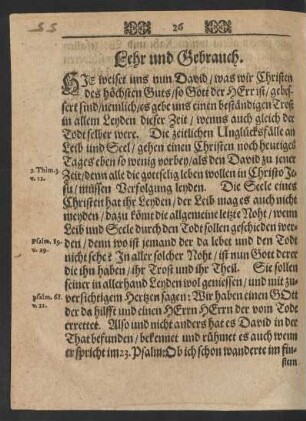 26
Lehr und Gebrauch.
HIe weiset uns nun David/was wir Christen
des höchsten Guts/so Gott der HErr ist/ gebes-
sert sind/nemlich/es gebe uns einen beständigen Trost
in allem Leyden dieser Zeit/ wenns auch gleich der
Todt selber were. Die zeitlichen Unglücksfälle an
Leib und Seel/ gehen einen Christen noch heutiges
Tages eben so wenig vorbey/als den David zu jener
2. Thim. 3
v. 12.
Zeit/denn alle die gottselig leben wollen in Christo Je-
su/müssen Verfolgung leyden. Die Seele eines
Christen hat ihr Leyden/ der Leib mag es auch nicht
meyden/dazu kömt die allgemeine letzte Noht/ wenn
Leib und Seele durch den Todt sollen geschieden wer-
Psalm. 89.
v. 29.
den/denn wo ist jemand der da lebet und den Todt
nicht sehe? In aller solcher Noht/ ist nun Gott derer
die ihn haben/ ihr Trost und ihr Theil. Sie sollen
seiner in allerhand Leyden wol geniessen/ und mit zu-
psalm. 68.
v. 21.
versichtigem Hertzen sagen: Wir haben einen GOtt
der da hilfft und einen HErrn HErrn der vom Tode
errettet. Also und nicht anders hat es David in der
That befunden/ bekennet und rühmet es auch wenn
er spricht im 23. Psalm: Ob ich schon wanderte im fin-
stern